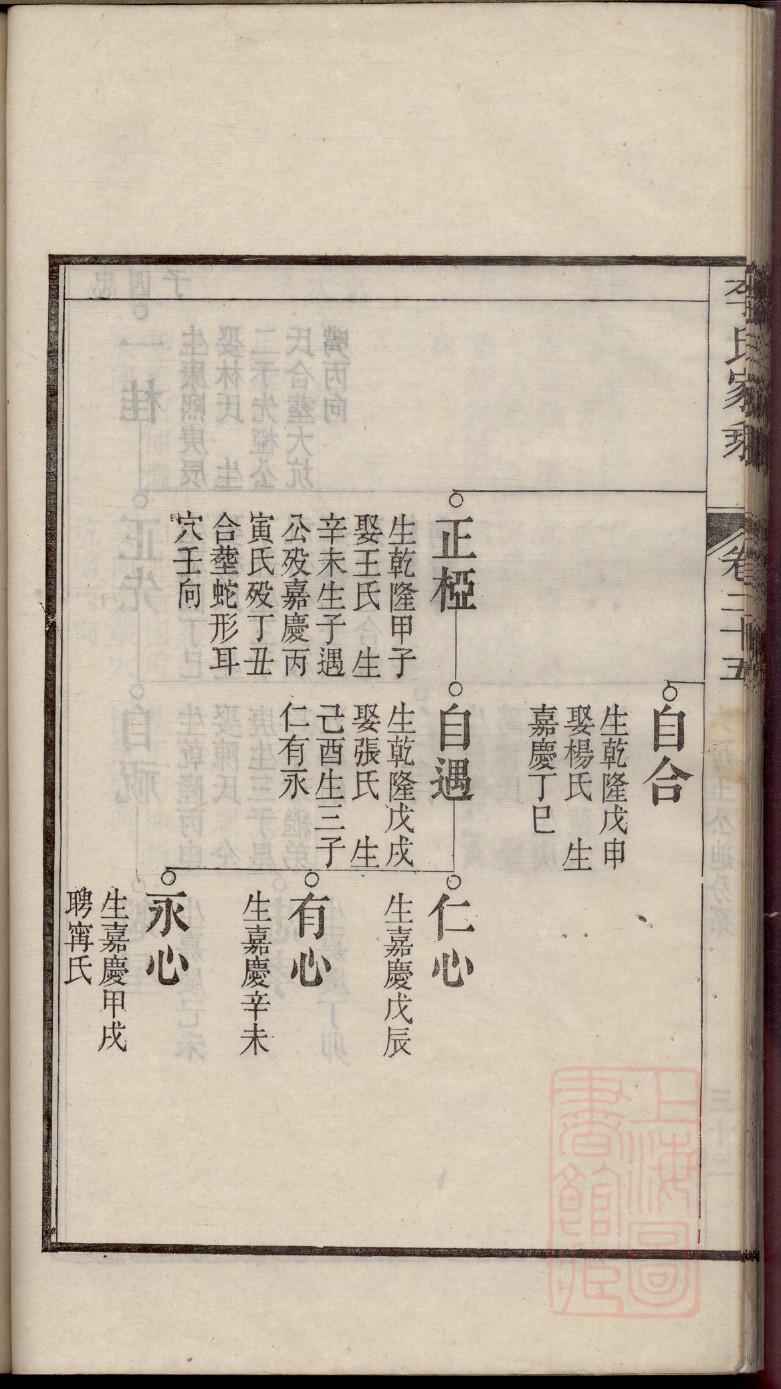 李氏家乘
卷二十五
自合
生乾隆戊申
娶楊氏　生
嘉慶丁巳
正椏
生乾隆甲子
娶王氏　生
辛未生子遇
公歿嘉慶丙
寅氏歿丁丑
合塟蛇形耳
穴壬向
自遇
生乾隆戊戌
娶張氏　生
己酉生三子
仁有永
仁心
生嘉慶戊辰
有心
生嘉慶辛未
永心
生嘉慶甲戌
聘寗氏
上海圖
書館藏